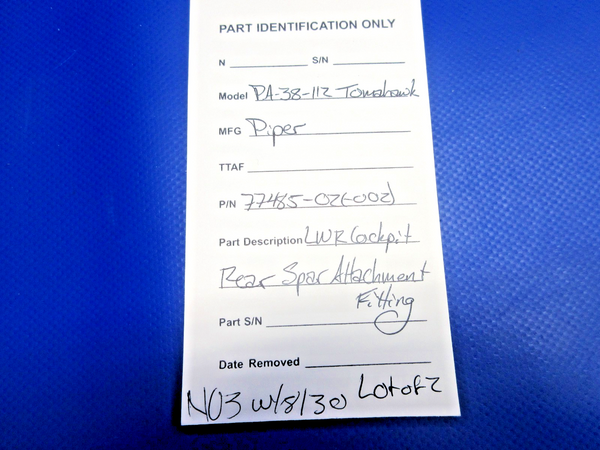 PART IDENTIFICATION ONLY
N S/N
Model PA-38-112 Tomahawk
MFG Piper
TTAF
P/N 77485-02(-002)
Part Description LWR Cockpit
Rear Spar Attachment
Fitting
Part S/N
Date Removed
N03 W/8/30 Lot of 2